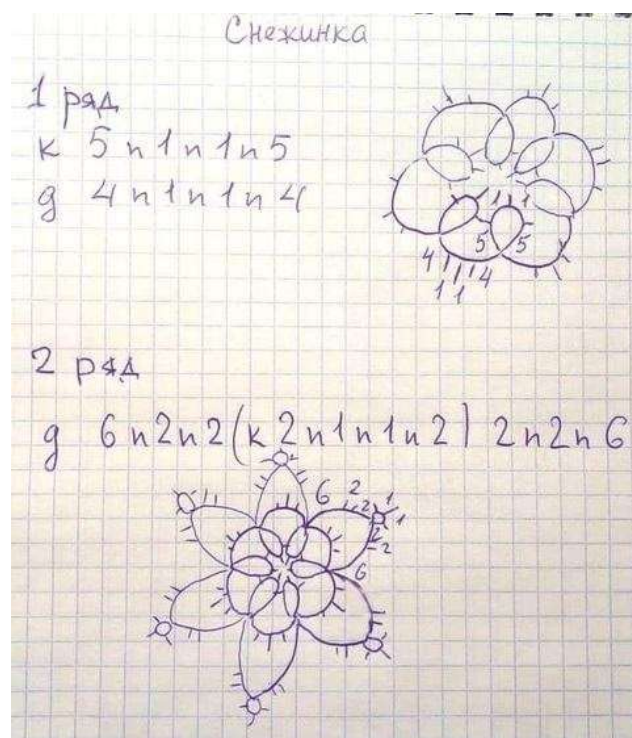 Снежинка
1 ряд
к 5 п 1 п 1 п 5
д 4 п 1 п 1 п 4
1 1
5 5
4 4
1 1
2 ряд
д 6 п 2 п 2 (к 2 п 1 п 1 п 2) 2 п 2 п 6
6 2 2 1 1
2 2
6